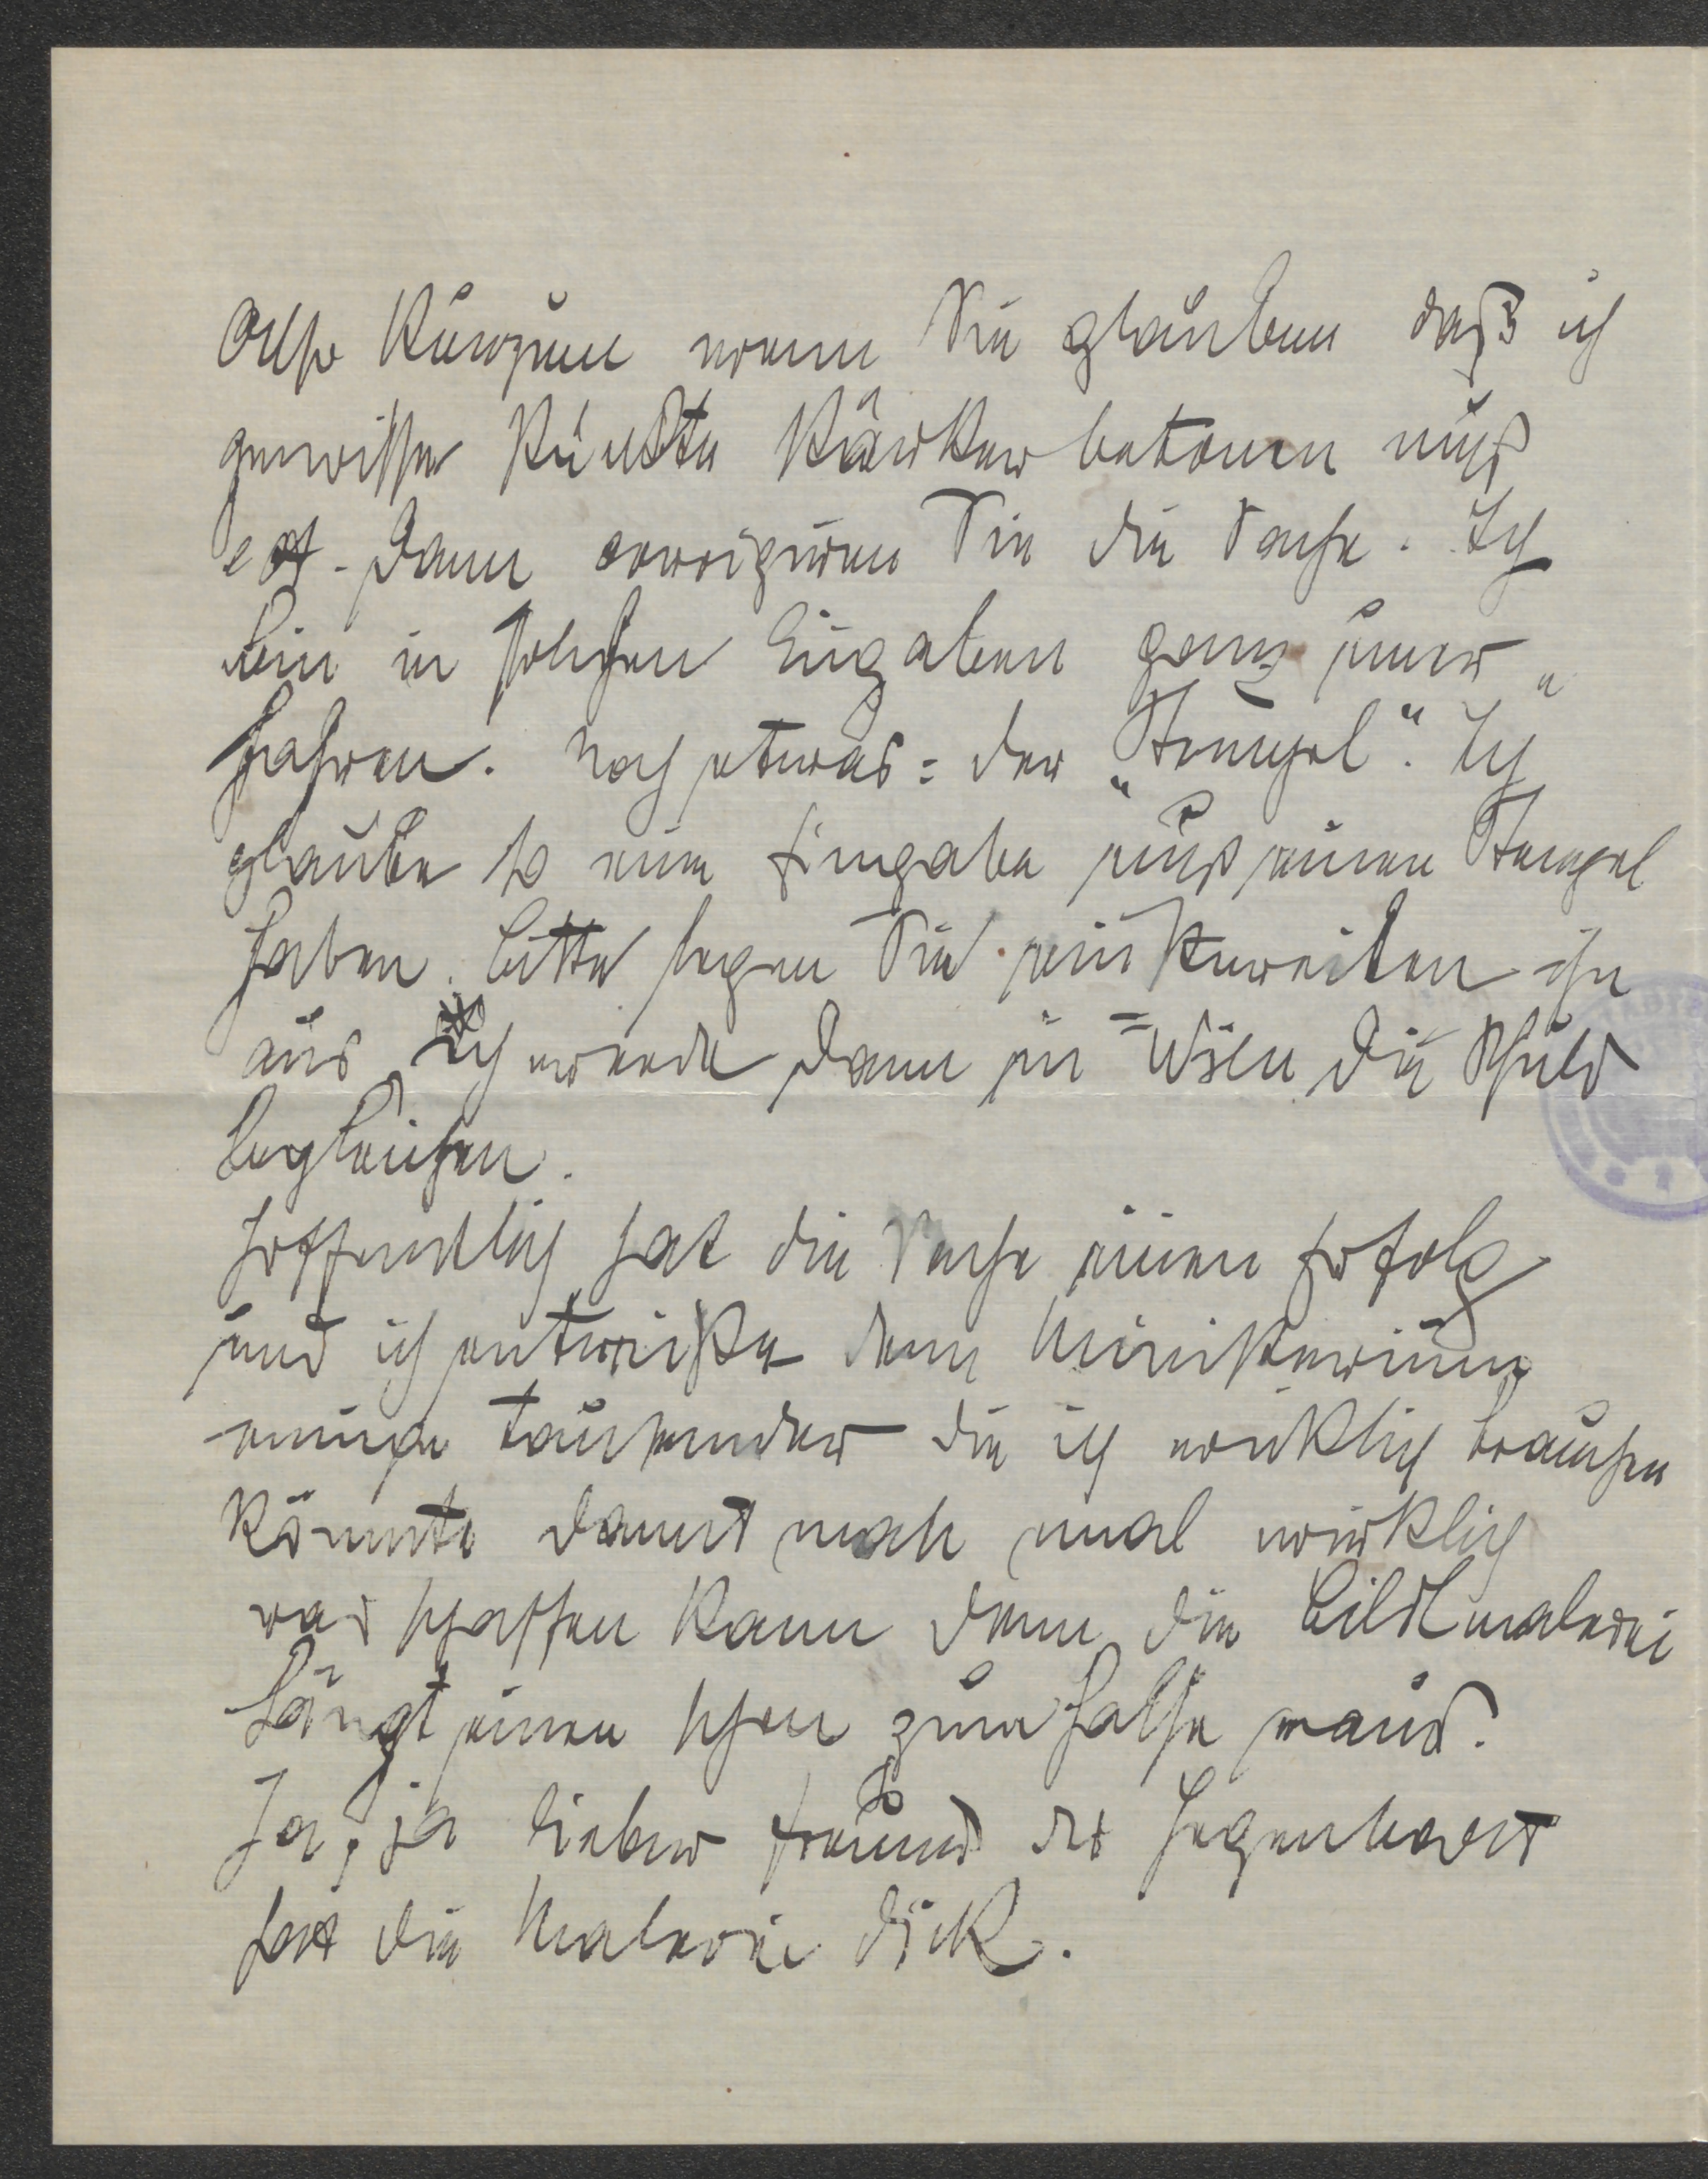 Also Kurzum wenn Sie glauben daß ich
gewisse Punkte stärker betonen muß
ect. dann corrigieren Sie die Sache. Ich
bin in solchen Eingaben ganz uner„
fahren. Noch etwas: der „Stempel“. Ich
glaube so eine Eingabe muß einen Stempel
haben. Bitte legen Sie einstweilen ihn
aus ich werde dann in Wien die Schuld
begleichen.
Hoffentlich hat die Sache einen Erfolg
und ich entreiße dem Ministerium
einige Tausender die ich wirklich brauchen
könnte damit man mal wirklich
was schaffen kann denn die Bildlmalerei
hängt einen schon zum Halse raus.
Ja, ja lieber Freund der Hegenbart
hat die Malerei dick.